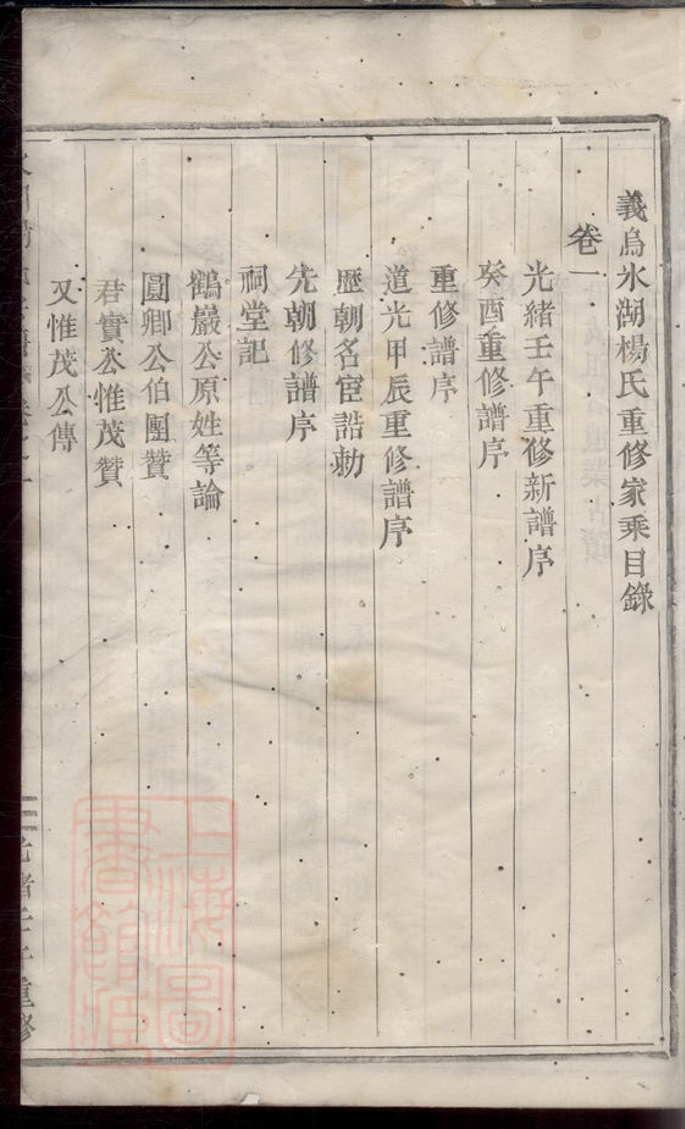 義烏氷湖楊氏重修家乘目錄
卷一
光緒壬午重修新譜序
癸酉重修譜序
重修譜序
道光甲辰重修譜序
歷朝名宦誥勅
先朝修譜序
祠堂記
鶴巖公原姓等論
圓卿公伯團贊
君實公惟茂贊
又惟茂公傳
光緒壬午重修
上海圖書館藏